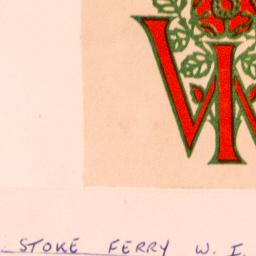 WI
STOKE FERRY W. I.